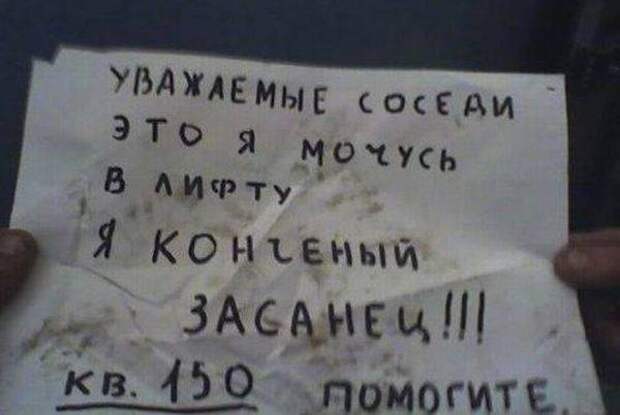 УВАЖАЕМЫЕ СОСЕДИ
ЭТО Я МОЧУСЬ
В ЛИФТУ
Я КОНЧЕНЫЙ
ЗАСАНЕЦ!!!
КВ. 150 ПОМОГИТЕ